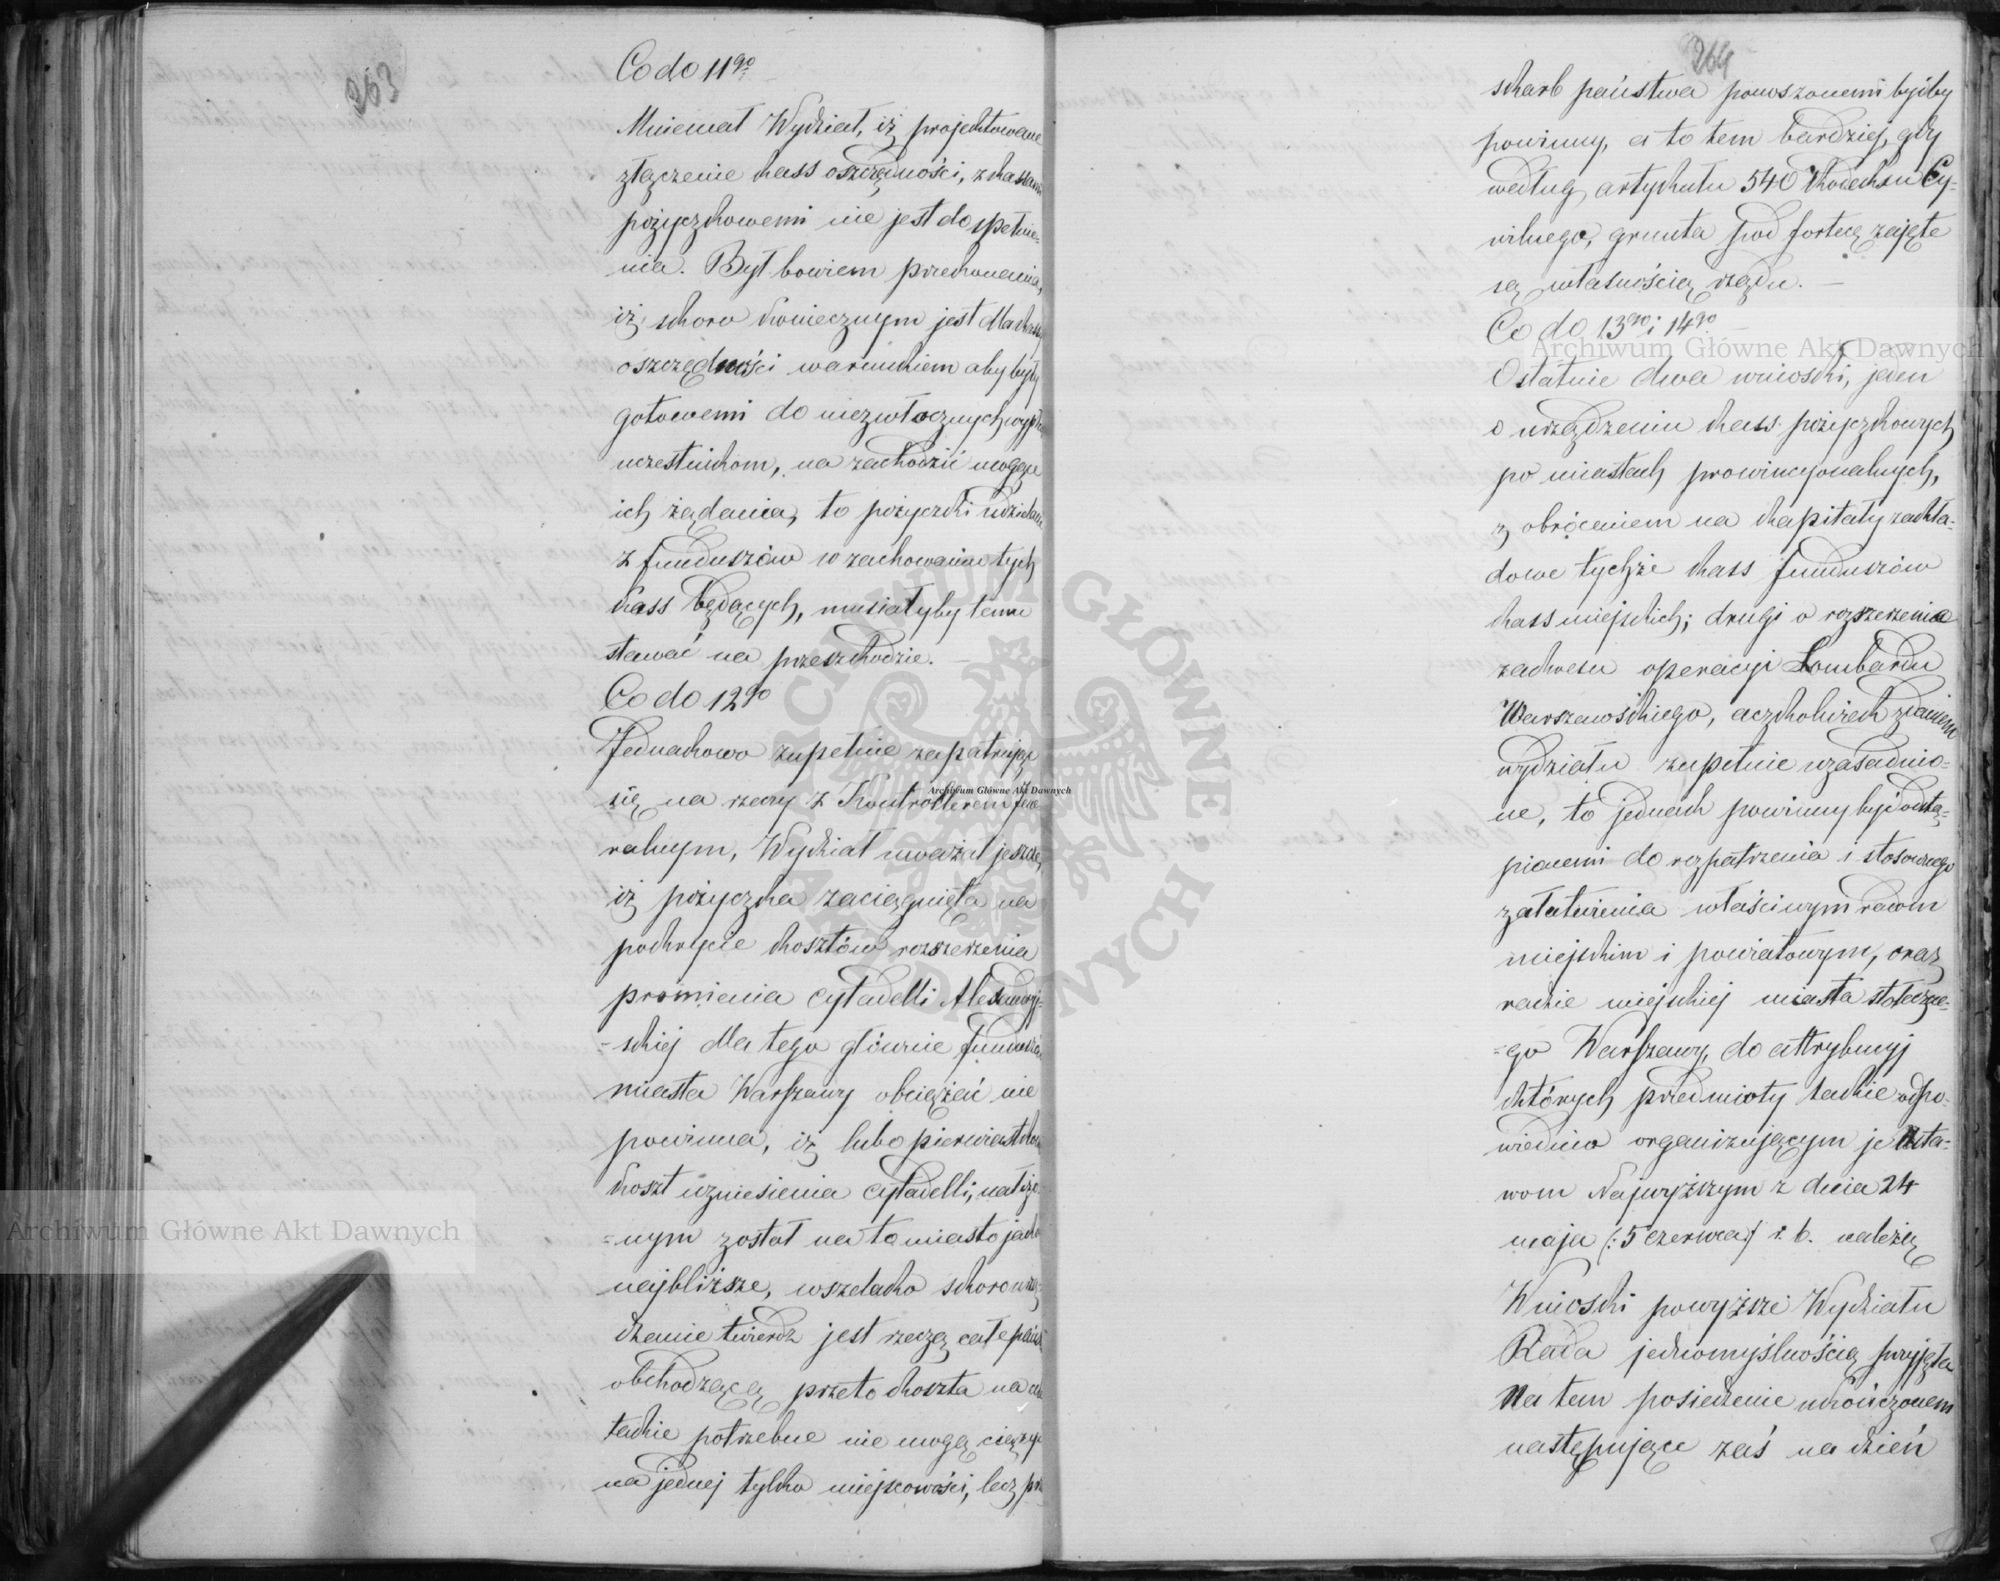 263
Co do 11go
Mniemał Wydział, iż projektowane
złączenie kass oszczędności, z kassami
pożyczkowemi nie jest do spełnie-
nia. Był bowiem przekonania,
iż skoro koniecznym jest dla kass
oszczędności warunkiem aby były
gotowemi do niezwłocznych wypłat
uczestnikom, na zachodzić mogące
ich żądania, to pożyczki udzielane
z funduszów w zachowaniu tych
kass będących, musiałyby temu
stawać na przeszkodzie. —
Co do 12go
Jednakowo zupełnie zapatrując
się na rzeczy z Kontrollerem Jene
ralnym, Wydział uważał jeszcze,
iż pożyczka zaciągnięta na
pokrycie kosztów rozszerzenia
promienia cytadelli Alexandryj-
=skiej dla tego głównie funduszów
miasta Warszawy obciążać nie
powinna, iż lubo pierwiastkowo
koszt wzniesienia cytadelli, nałożo
=nym został na to miasto jako
najbliższe, wszelako skoro urzą-
dzenie twierdz jest rzeczą całe państ
obchodzącą przeto koszta na cele
takie potrzebne nie mogą ciężyć
na jednej tylko miejscowości, lecz prz
264
skarb państwa ponoszonemi byćby
powinny, a to tem bardziej, gdy
według artykułu 540 Kodeksu Cy-
wilnego, grunta pod fortecę zajęte
są własnością rządu. —
Co do 13go i 14go
Ostatnie dwa wnioski, jeden
o urządzeniu kass pożyczkowych
po miastach prowincyonalnych,
z obróceniem na kapitały zakła-
dowe tychże kass funduszów
kass miejskich; drugi o rozszerzenie
zakresu operacyi Lombardu
Warszawskiego, aczkolwiek zdaniem
wydziału zupełnie uzasadnio-
ne, to jednak powinny być odstą-
pionemi do rozpatrzenia i stosownego
załatwienia właściwym radom
miejskim i powiatowym, oraz
radzie miejskiej miasta stołeczne-
=go Warszawy, do attrybucyj
których przedmioty takie odpo-
wiednio organizującym je Usta-
wom Najwyższym z dnia 24
maja (:5 czerwca:) r. b. należą
Wnioski powyższe Wydziału
Rada jednomyślnością przyjęła
Na tem posiedzenie ukończonem
następujące zaś na dzień
Archiwum Główne Akt Dawnych
Archiwum Główne Akt Dawnych
Archiwum Główne Akt Dawnych
ARCHIWUM GŁÓWNE AKT DAWNYCH